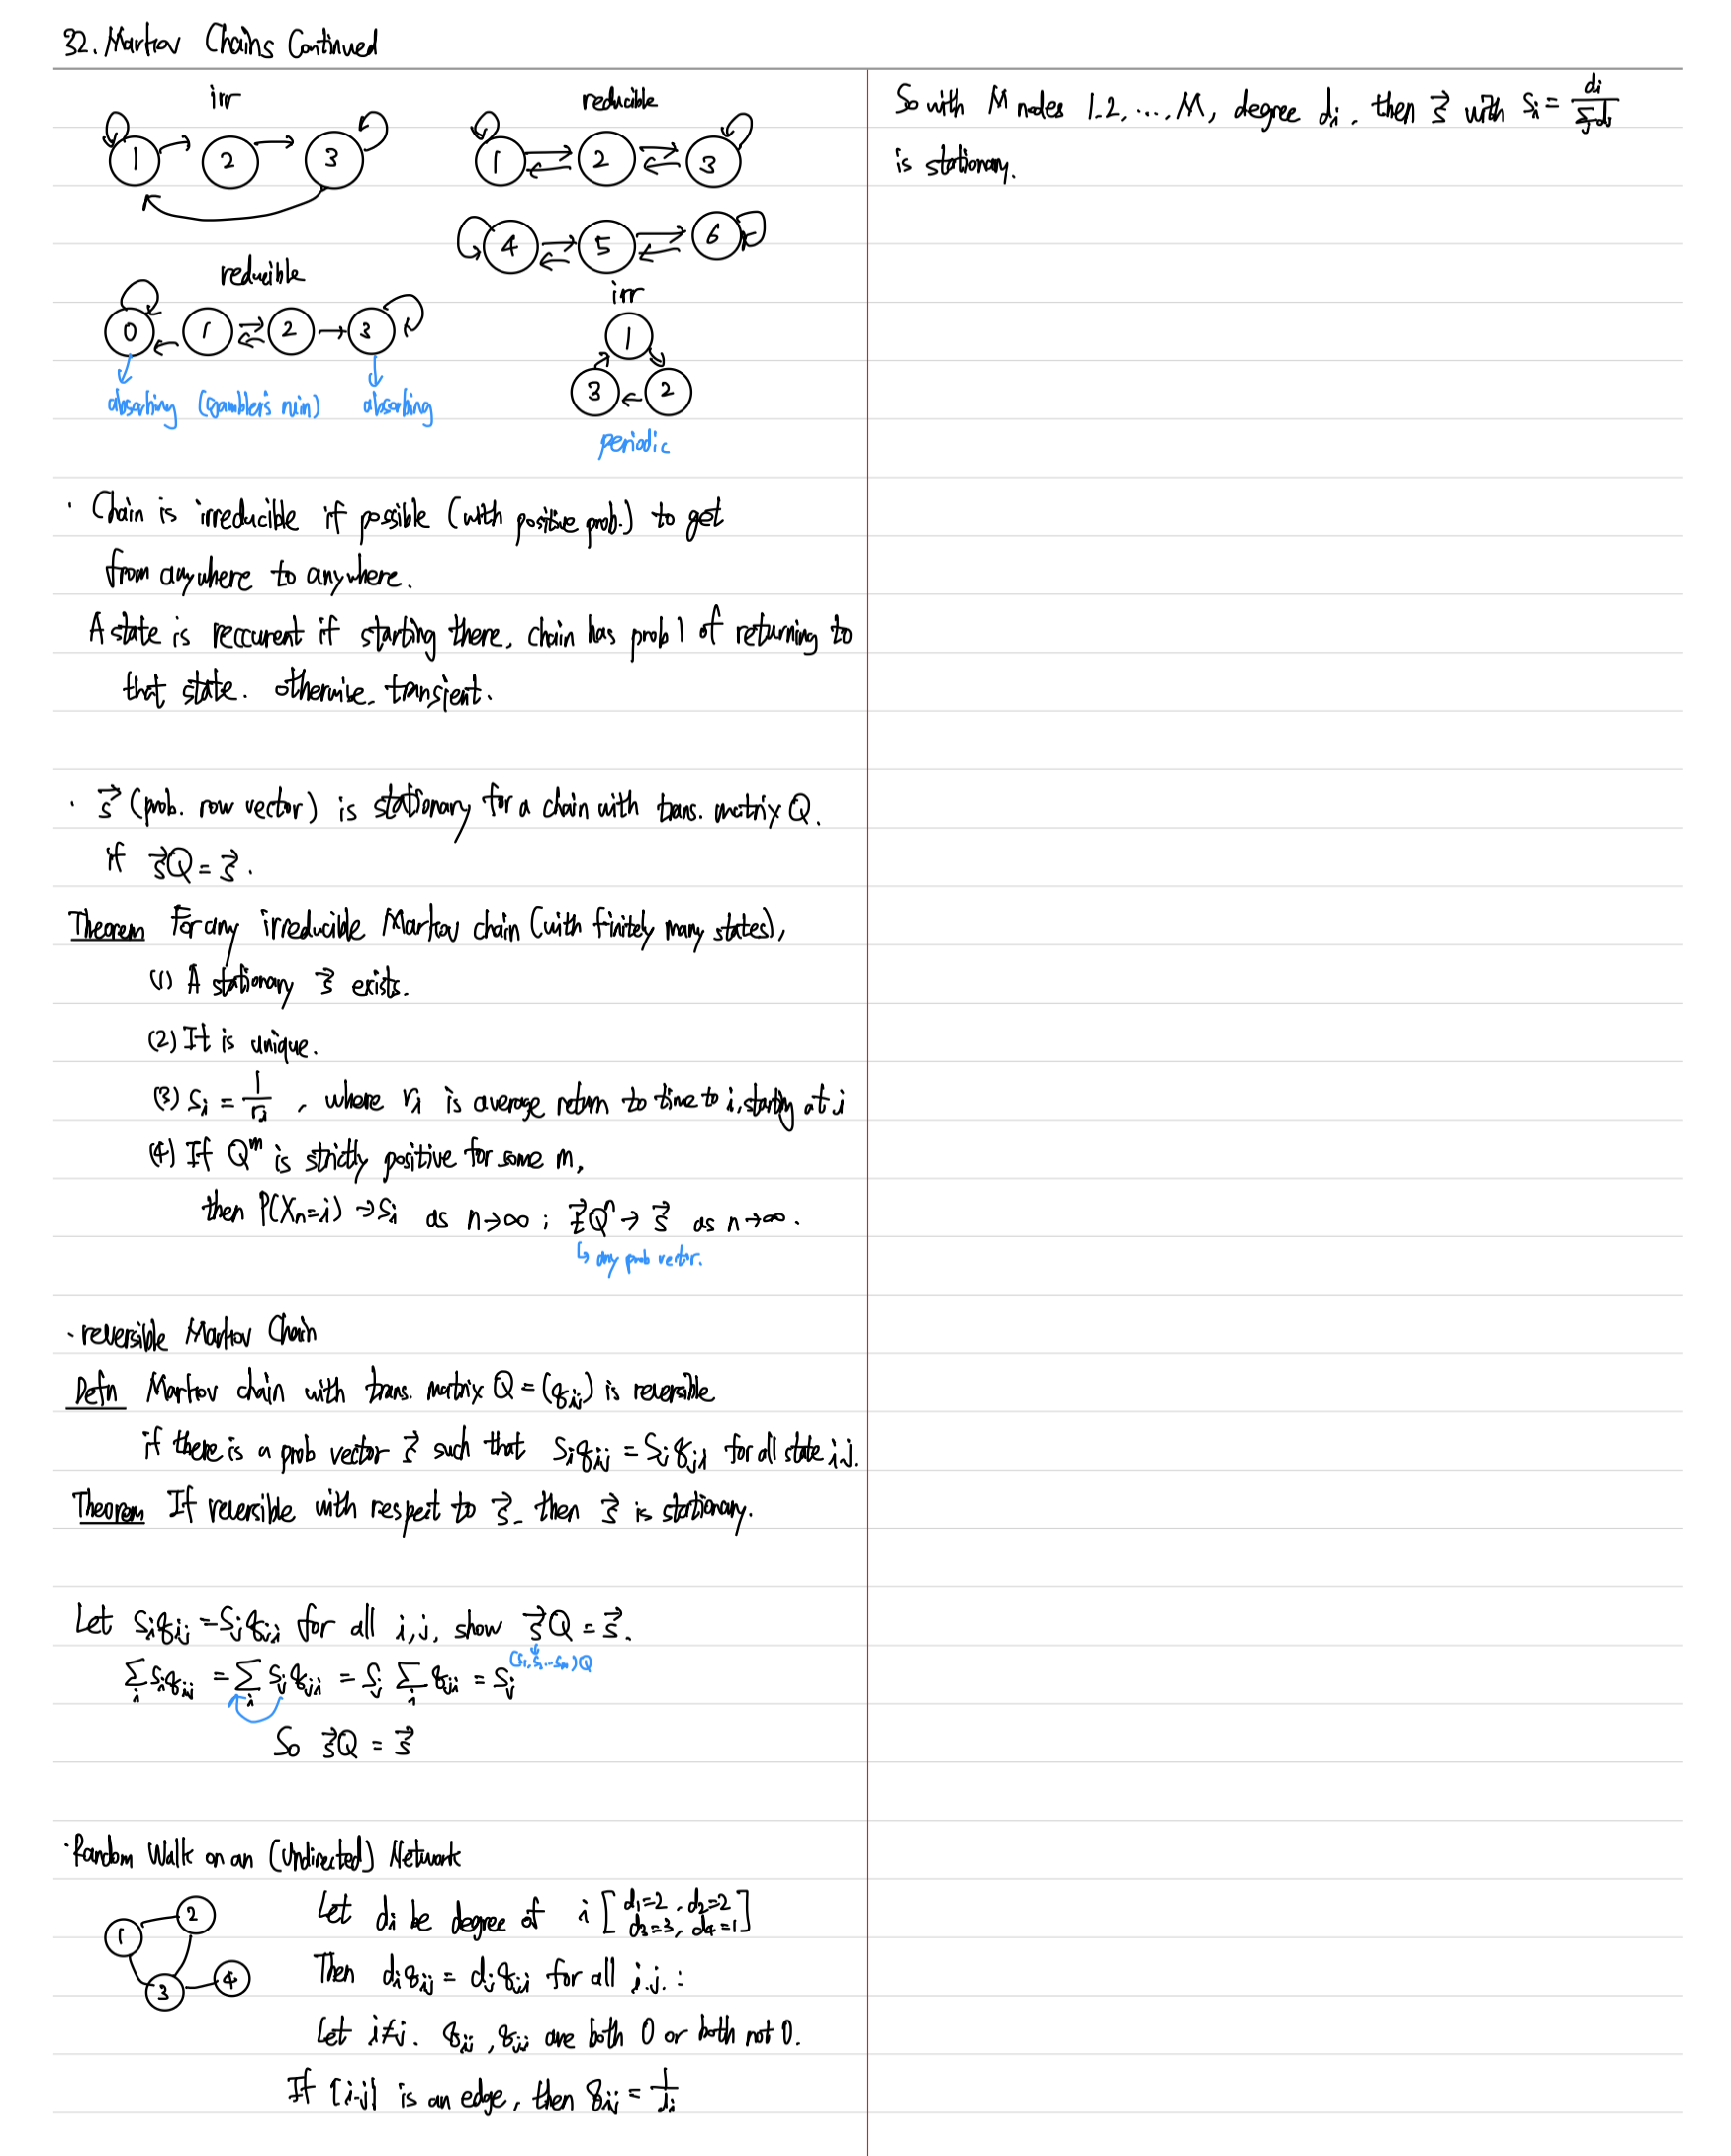 32. Markov Chains Continued
irr
1 2 3
reducible
1 2 3
4 5 6
reducible
0 1 2 3
absorbing (Gambler's ruin) absorbing
irr
1
3 2
periodic
· Chain is irreducible if possible (with positive prob.) to get
from anywhere to anywhere.
A state is reccurent if starting there, chain has prob 1 of returning to
that state. otherwise, transient.
· s⃗ (prob. row vector) is stationary for a chain with trans. matrix Q.
if s⃗Q = s⃗.
Theorem For any irreducible Markov chain (with finitely many states),
(1) A stationary s⃗ exists.
(2) It is unique.
(3) sᵢ = 1/rᵢ, where rᵢ is average return to time to i, starting at i
(4) If Qᵐ is strictly positive for some m,
then P(Xₙ=i) → sᵢ as n→∞ ; t⃗Qⁿ → s⃗ as n→∞.
↳ any prob vector.
· reversible Markov Chain
Defn Markov chain with trans. matrix Q = (qᵢⱼ) is reversible
if there is a prob vector s⃗ such that sᵢqᵢⱼ = sⱼqⱼᵢ for all state i,j.
Theorem If reversible with respect to s⃗, then s⃗ is stationary.
Let sᵢqᵢⱼ = sⱼqⱼᵢ for all i,j, show s⃗Q = s⃗.
(s₁, s₂ ... sₘ)Q
∑ᵢ sᵢqᵢⱼ = ∑ᵢ sⱼqⱼᵢ = sⱼ ∑ᵢ qⱼᵢ = sⱼ
So s⃗Q = s⃗
· Random Walk on an (Undirected) Network
1 2 3 4
Let dᵢ be degree of i [d₁=2, d₂=2
d₃=3, d₄=1]
Then dᵢqᵢⱼ = dⱼqⱼᵢ for all i,j. :
Let i≠j. qᵢⱼ, qⱼᵢ are both 0 or both not 0.
If {i-j} is an edge, then qᵢⱼ = 1/dᵢ
So with M nodes 1,2, ..., M, degree dᵢ, then s⃗ with sᵢ = dᵢ/∑ⱼdⱼ
is stationary.